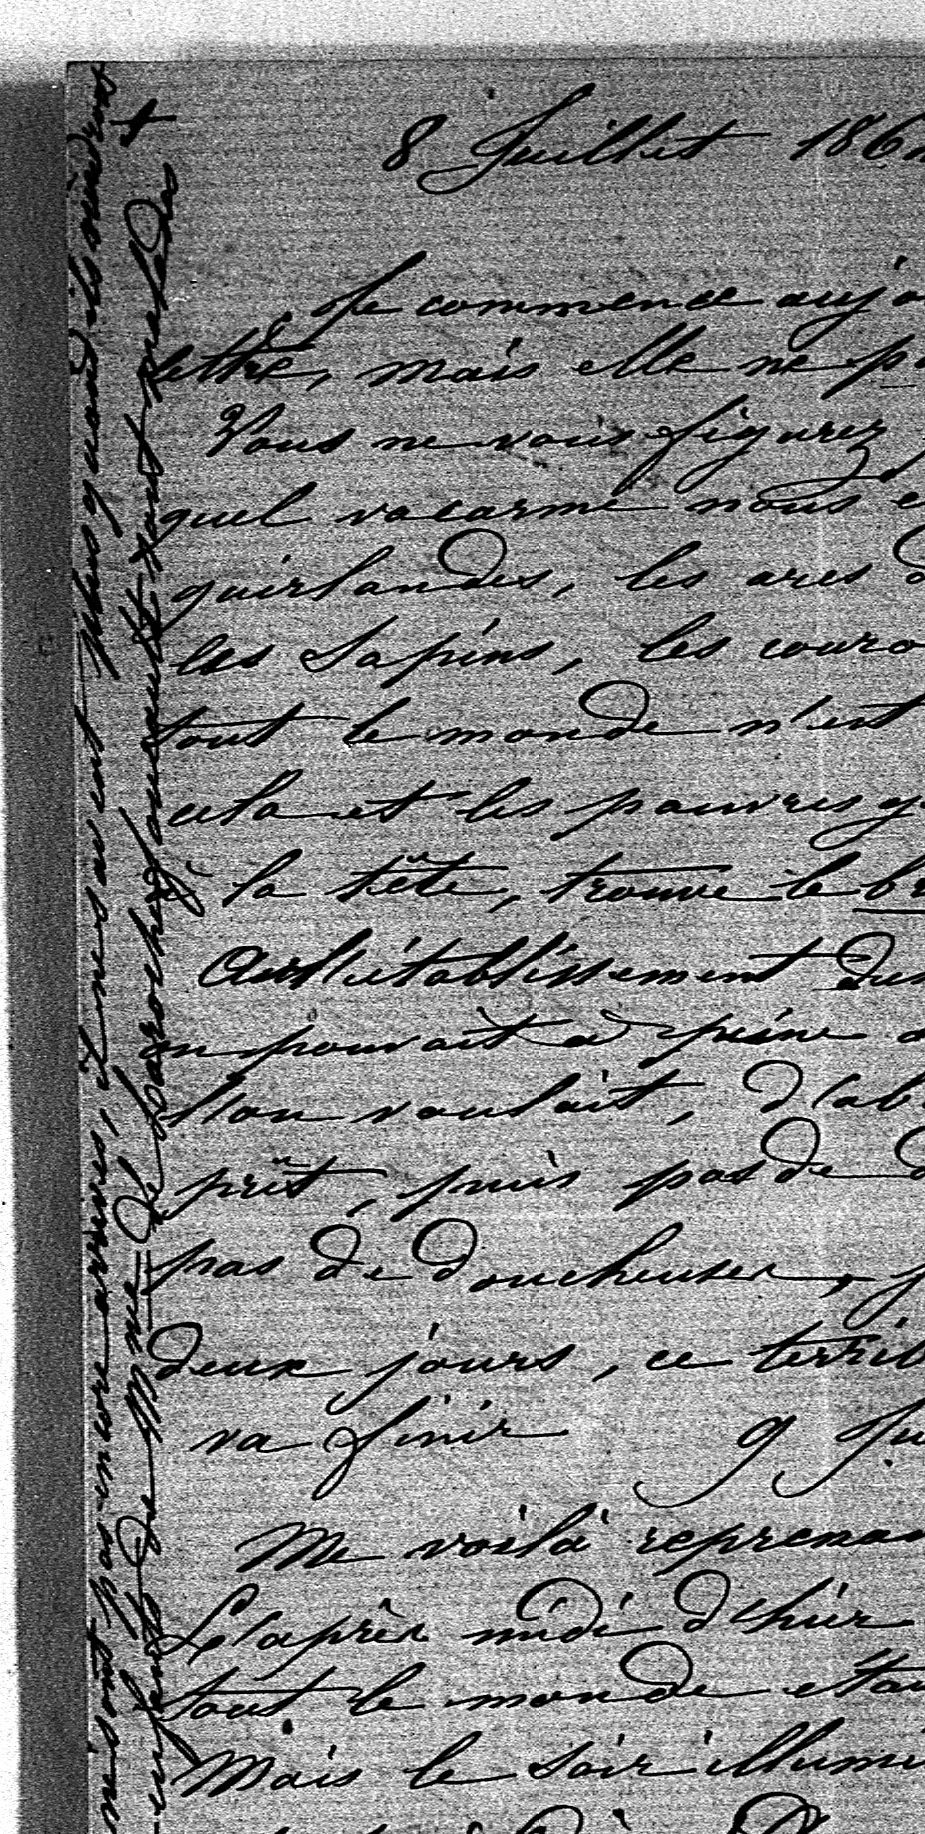 8 Juillet 186
Je commence aujo
lettre, mais elle ne p
Vous ne vous figurez
quel vacarme nous e
guirlandes, les arcs d
les Sapins, les couro
tout le monde n'est
cela et les pauvres g
à la tête, trouve le br
l'établissement du
on pouvait à peine
l'on voulait, d'ab
prêt, puis pas de d
pas de doucheuses, p
deux jours, ce terrib
va finir 9 Ju
Me voilà reprenan
L'après midi d'hier
tout le monde étai
Mais le soir illumi
ne sont pas encore arrivés, ils nous quand ils
enfants de Mme de